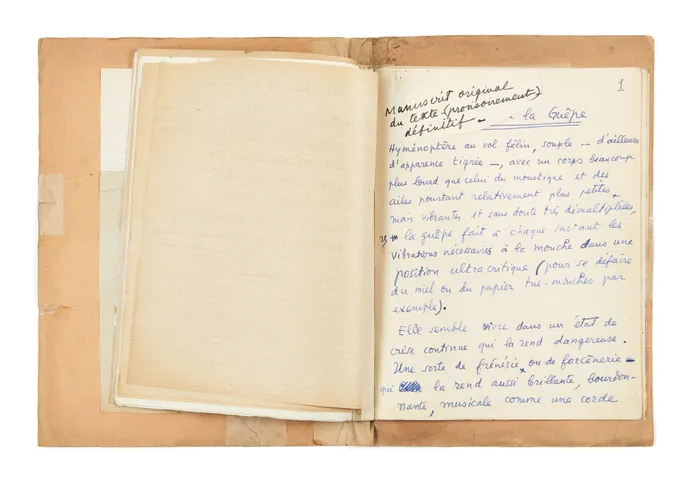 1
Manuscrit original
du texte (provisoirement)
définitif -
La Guêpe
Hyménoptère au vol félin, souple — d'ailleurs
d'apparence tigrée —, avec un corps beaucoup
plus lourd que celui du moustique et des
ailes pourtant relativement plus petites
mais vibrantes et sans doute très démultipliées,
la guêpe fait à chaque instant les
vibrations nécessaires à la mouche dans une
position ultracritique (pour se défaire
du miel ou du papier tue-mouches par
exemple).
Elle semble vivre dans un état de
crise continue qui la rend dangereuse.
Une sorte de frénésie ou de forcènerie
qui la rend aussi brillante, bourdon-
nante, musicale comme une corde